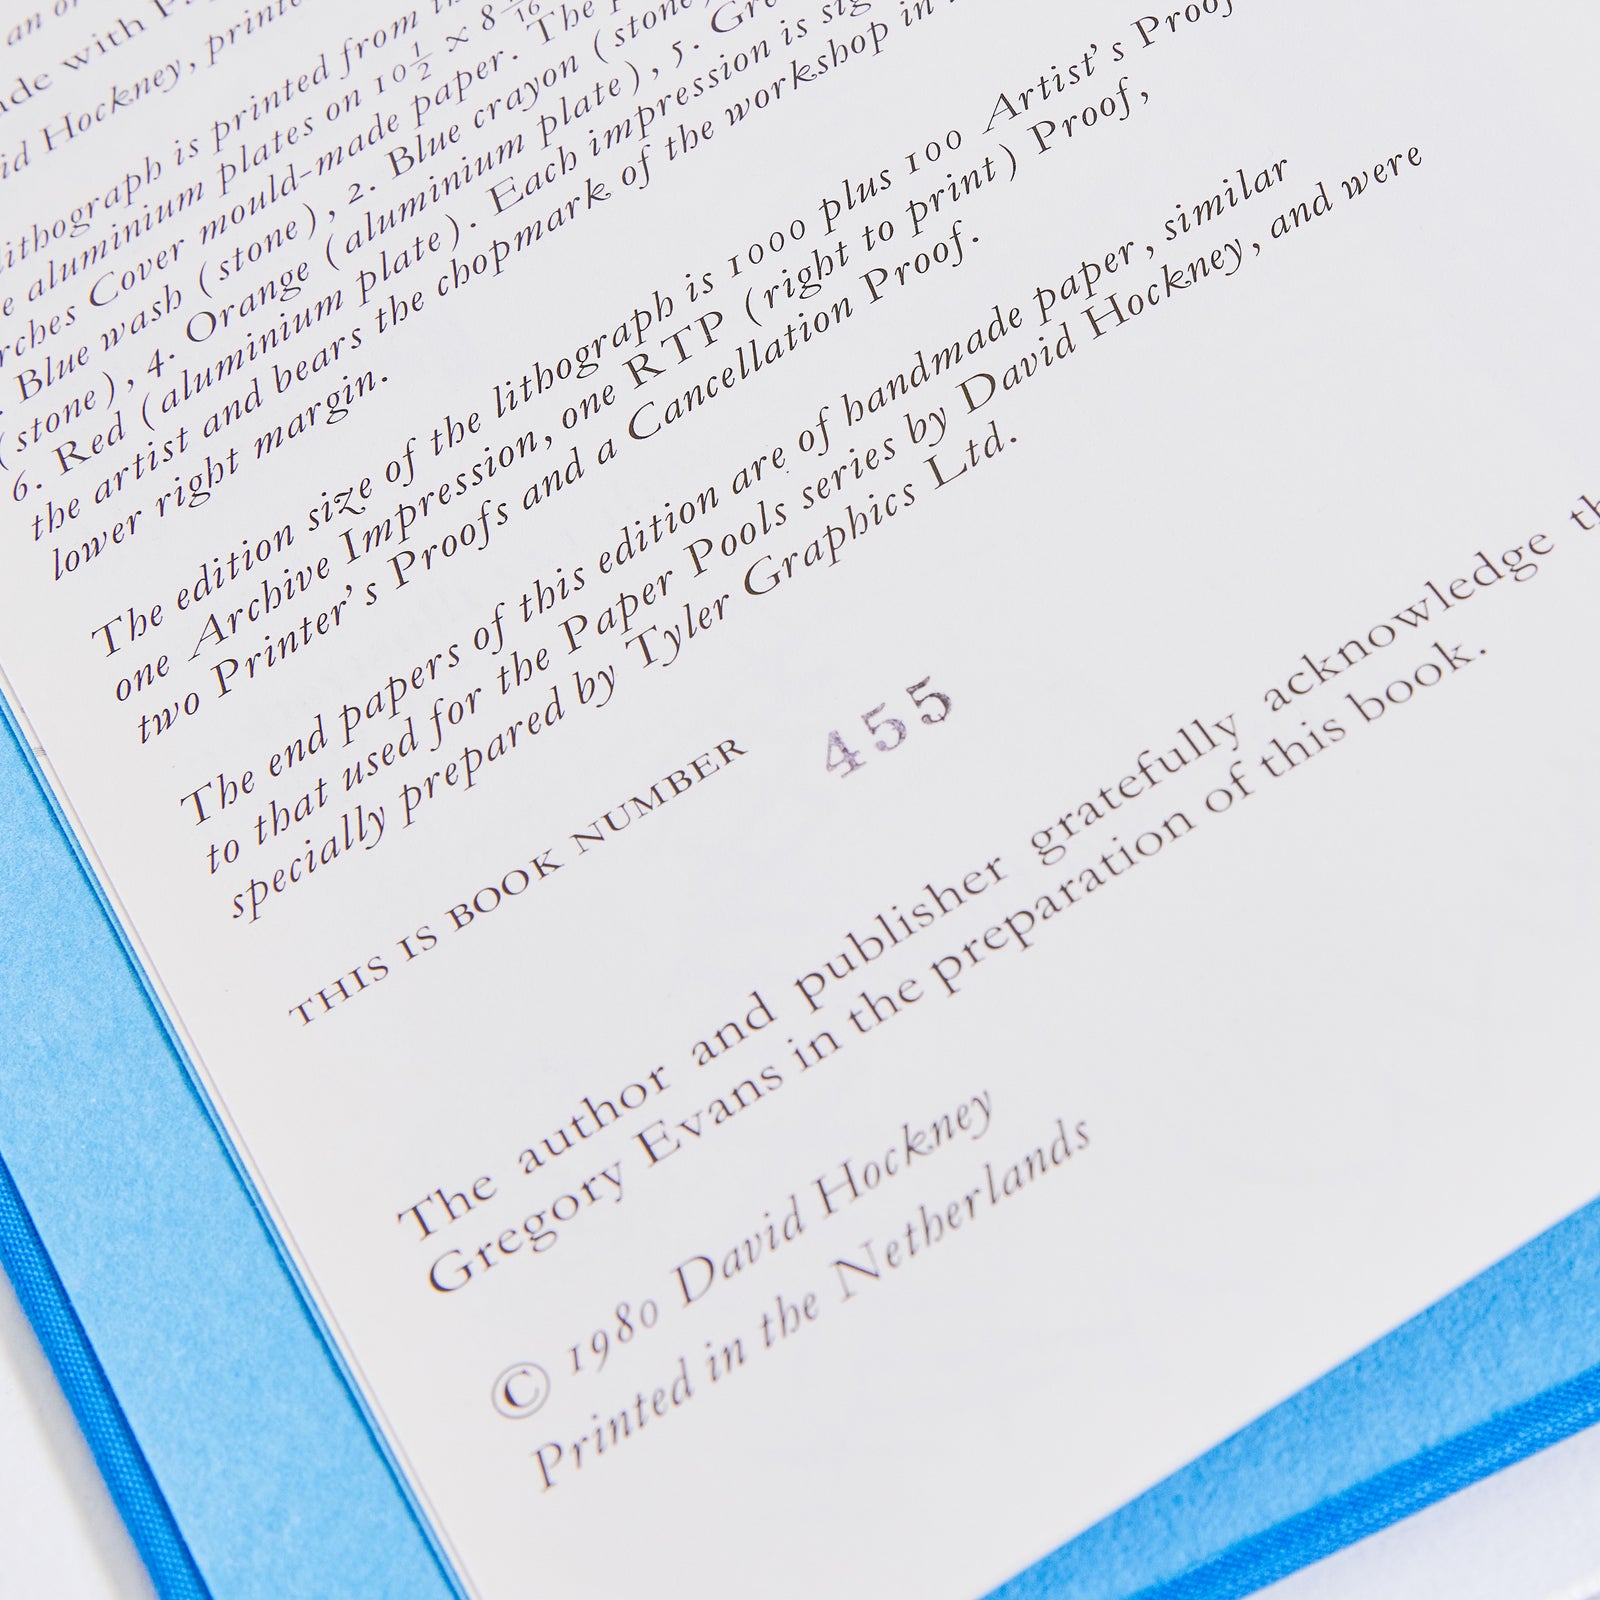 an or
de with Pa
id Hockney, printe
lithograph is printed from th
e aluminium plates on 10½ × 8
rches Cover mould-made paper. The p
. Blue wash (stone), 2. Blue crayon (stone
(stone), 4. Orange (aluminium plate), 5. Gre
6. Red (aluminium plate). Each impression is sig
the artist and bears the chopmark of the workshop in
lower right margin.
The edition size of the lithograph is 1000 plus 100 Artist's Proof
one Archive Impression, one RTP (right to print) Proof,
two Printer's Proofs and a Cancellation Proof.
The end papers of this edition are of handmade paper, similar
to that used for the Paper Pools series by David Hockney, and were
specially prepared by Tyler Graphics Ltd.
THIS IS BOOK NUMBER 455
The author and publisher gratefully acknowledge th
Gregory Evans in the preparation of this book.
© 1980 David Hockney
Printed in the Netherlands